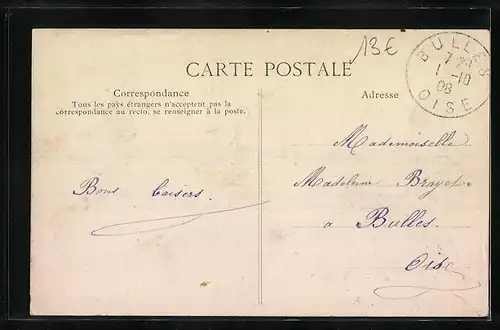 13€
BULLES
7 25
1 -10
08
OISE
CARTE POSTALE
Correspondance
Tous les pays étrangers n'acceptent pas la
correspondance au recto, se renseigner à la poste.
Adresse
Bons baisers.
Mademoiselle
Madeleine
a Bulles.
Oise